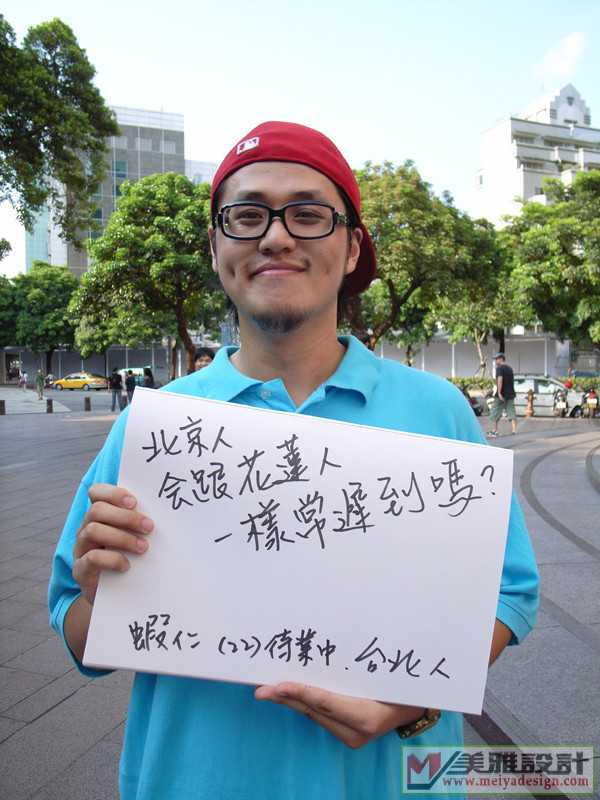 北京人
会跟花蓮人
一樣常遲到嗎?
蝦仁 (22) 待業中. 台北人
美雅設計
www.meiyadesign.com